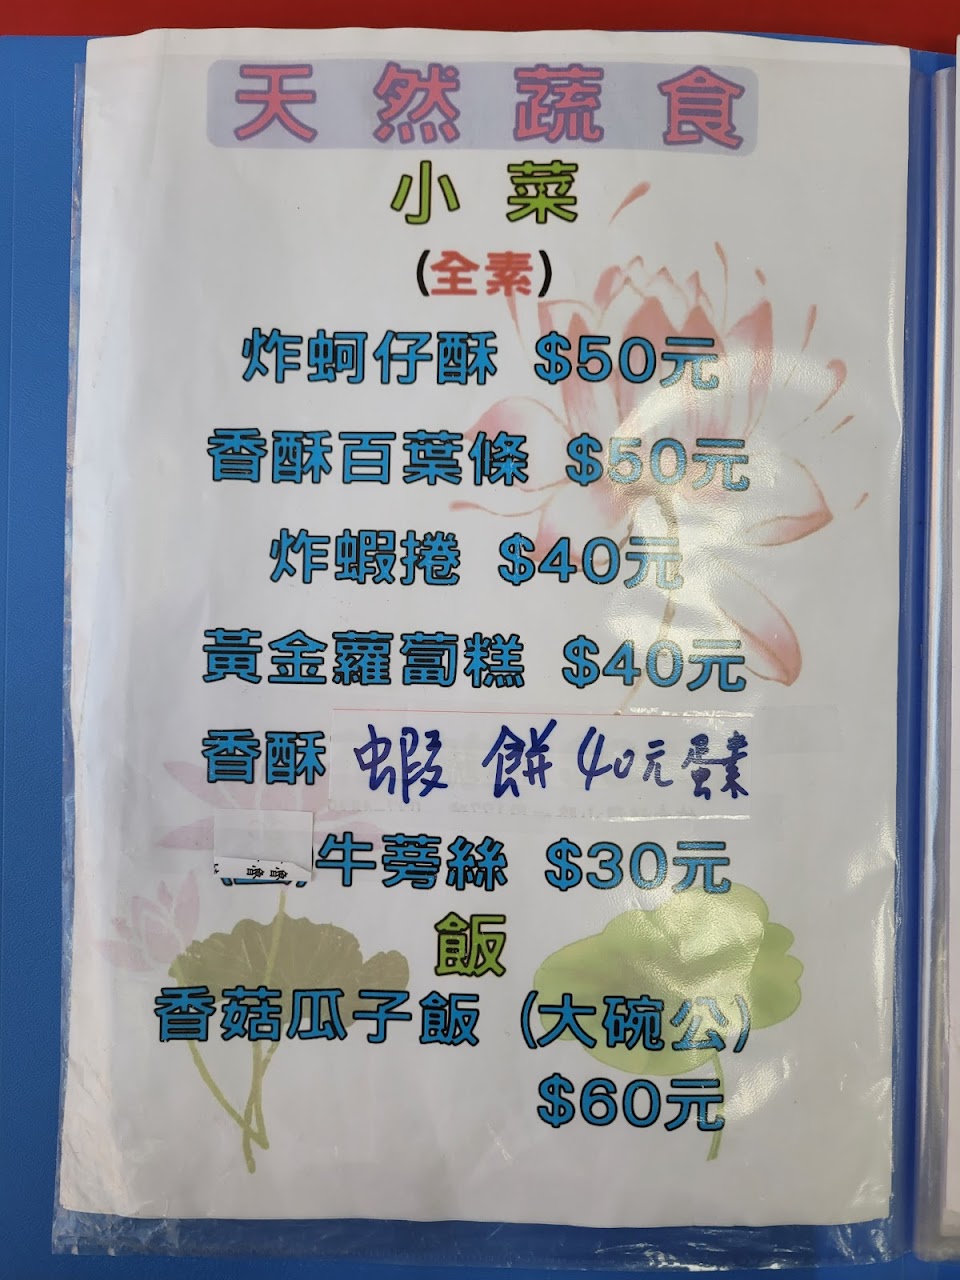 天然蔬食
小菜
(全素)
炸蚵仔酥 $50元
香酥百葉條 $50元
炸蝦捲 $40元
黃金蘿蔔糕 $40元
香酥蝦餅40元蛋素
牛蒡絲 $30元
飯
香菇瓜子飯 (大碗公)
$60元